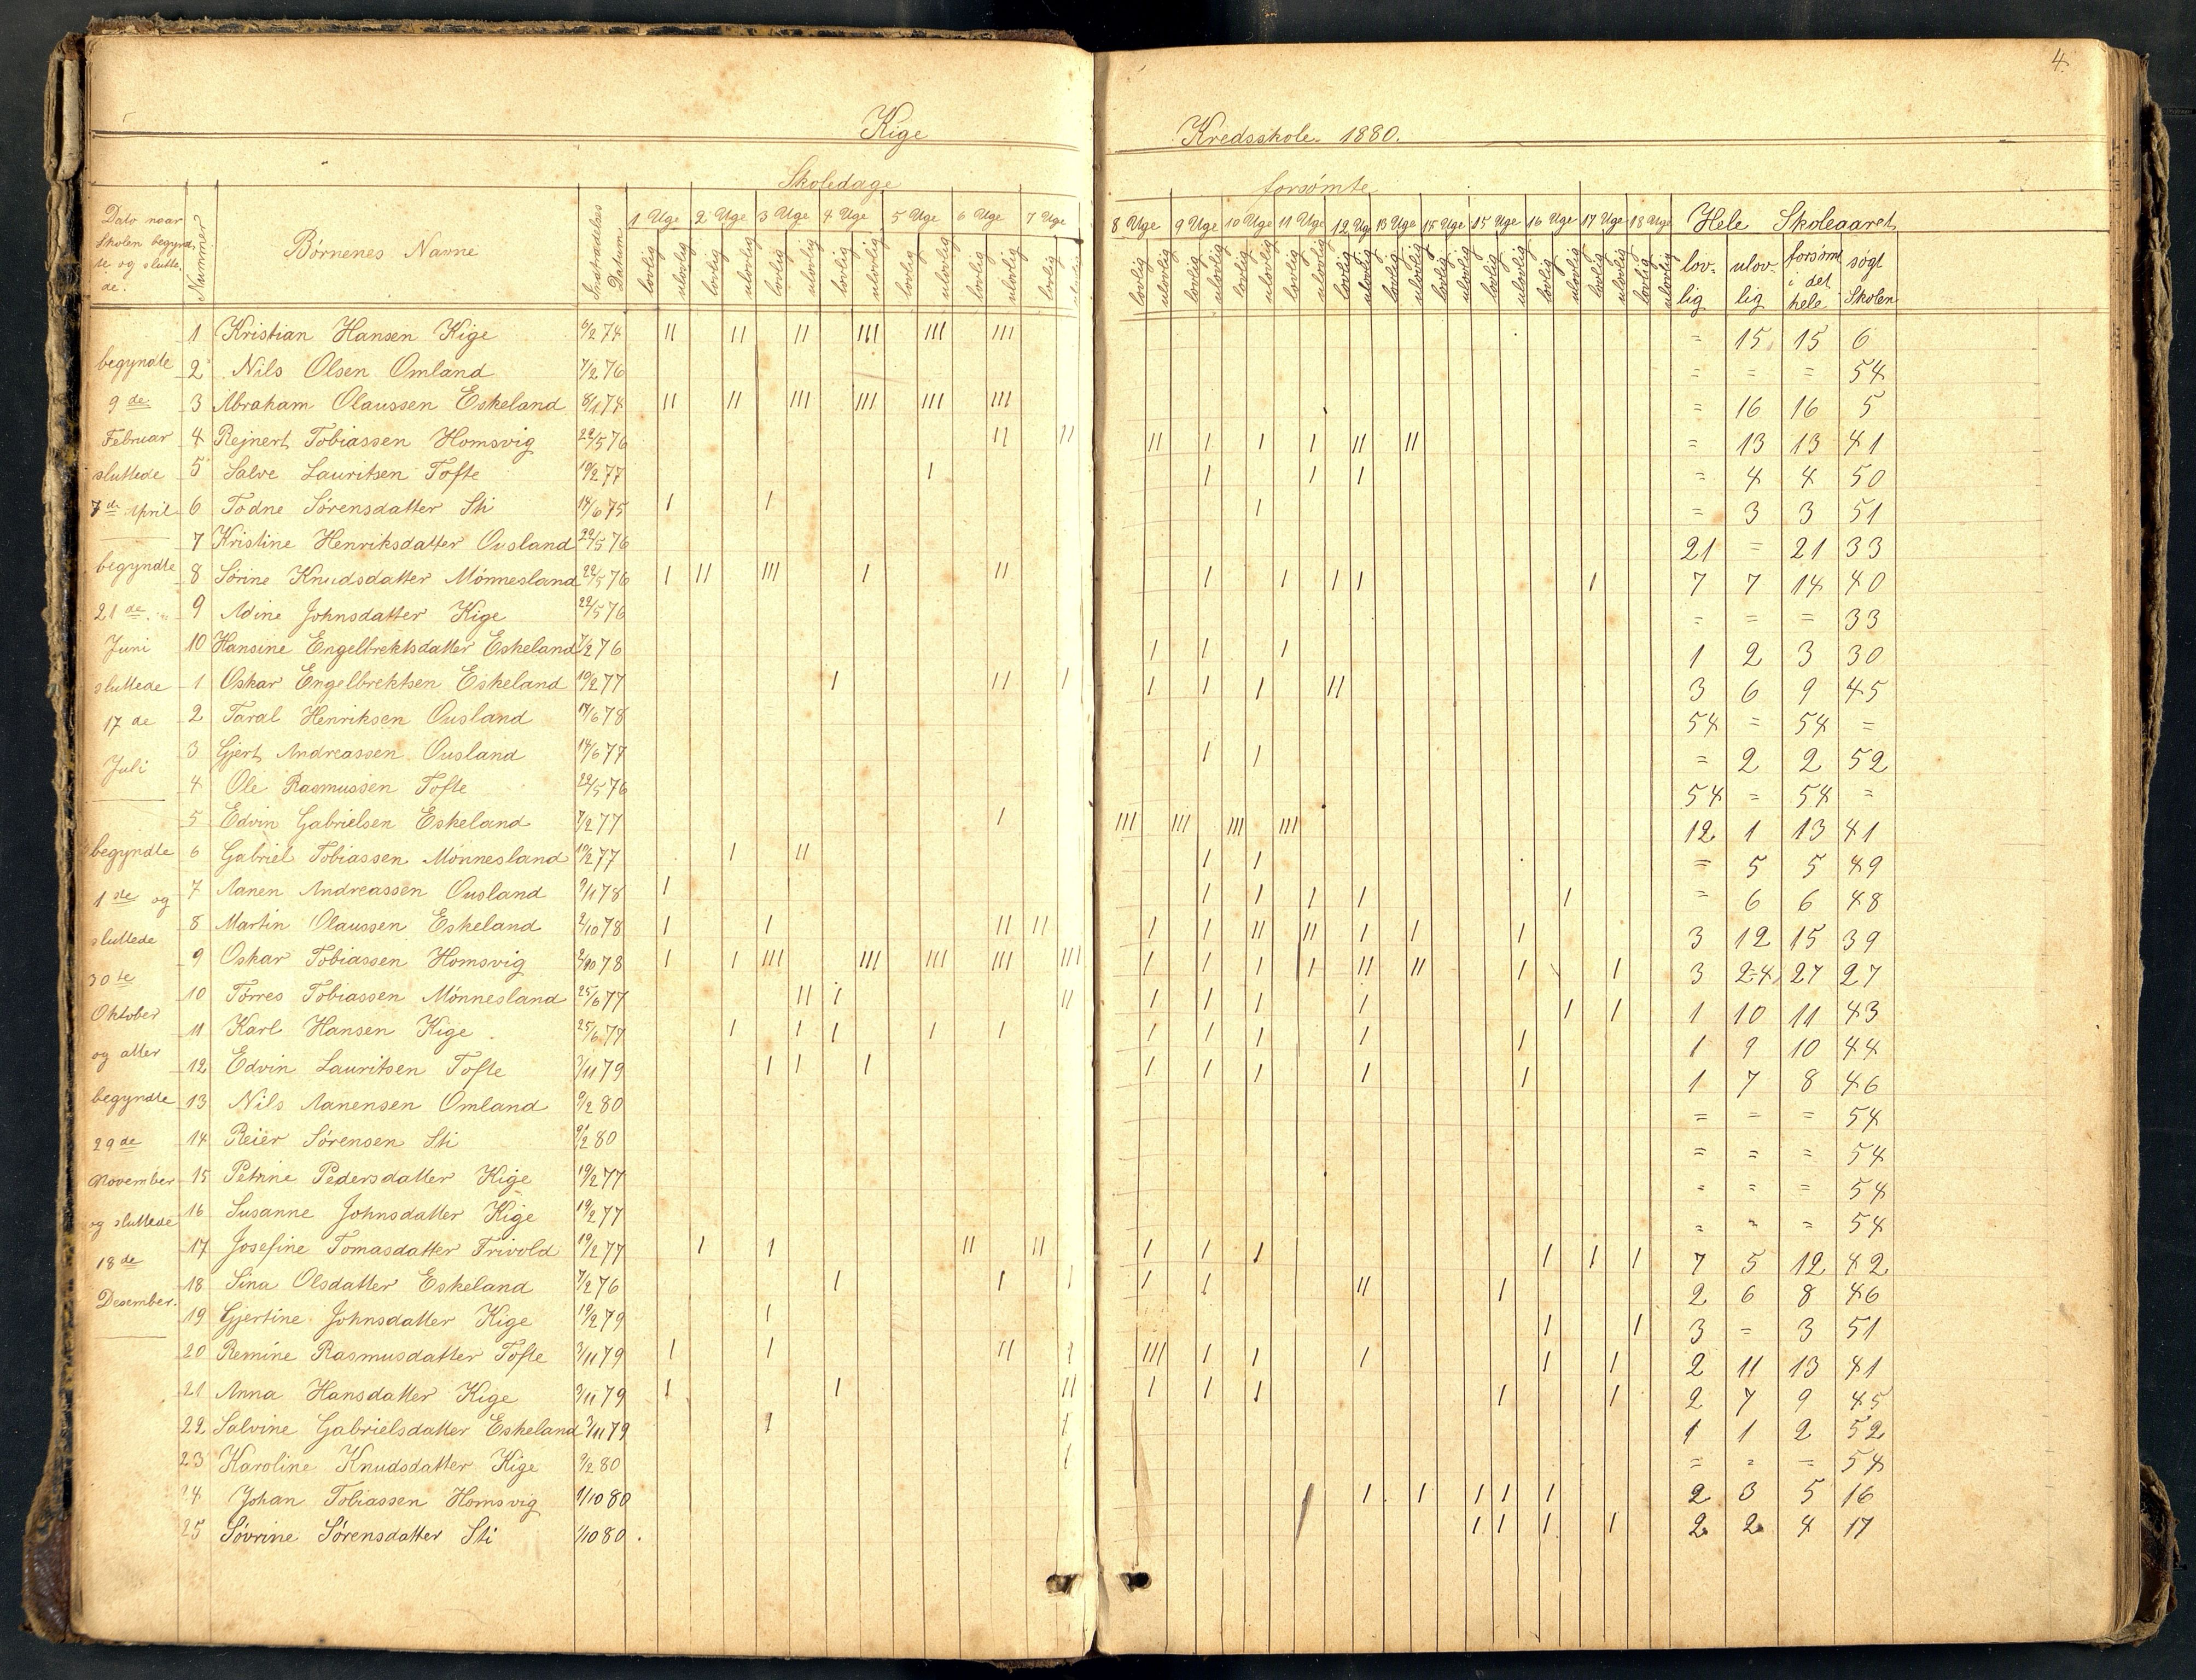 4.
Kige Kredsskole 1880.
Skoledage forsømte
Dato naar Skolen begyndte og sluttede.
Nummer
Børnenes Navne
Indtrædelses Datum
1 Uge 2 Uge 3 Uge 4 Uge 5 Uge 6 Uge 7 Uge 8 Uge 9 Uge 10 Uge 11 Uge 12 Uge 13 Uge 14 Uge 15 Uge 16 Uge 17 Uge 18 Uge Hele Skoleaaret
lovlig ulovlig lovlig ulovlig lovlig ulovlig lovlig ulovlig lovlig ulovlig lovlig ulovlig lovlig ulovlig lovlig ulovlig lovlig ulovlig lovlig ulovlig lovlig ulovlig lovlig ulovlig lovlig ulovlig lovlig ulovlig lovlig ulovlig lovlig ulovlig lovlig ulovlig lovlig ulovlig
lovlig ulovlig forsømt i det hele søgt Skolen
begyndte
9de
Februar
sluttede
7de April
begyndte
21de
Juni
sluttede
17 de
Juli
begyndte
1ste og
sluttede
30te
Oktober
og atter
begyndte
29de
November
og sluttede
18de
Desember.
1 Kristian Hansen Kige 6/2 74 II II II III III III = 15 15 6
2 Nils Olsen Omland 7/2 76 = = = 54
3 Abraham Olaussen Eskeland 8/1 74 II II III III III III = 16 16 5
4 Rejnert Tobiassen Homsvig 22/5 76 II II II I I I II II = 13 13 41
5 Salve Lauritsen Tofte 19/2 77 I I I I = 4 4 50
6 Todne Sørensdatter Sti 14/6 75 I I I = 3 3 51
7 Kristine Henriksdatter Ousland 22/5 76 21 = 21 33
8 Sørine Knudsdatter Mønnesland 22/5 76 I II III I II I I I I I 7 7 14 40
9 Adine Johnsdatter Kige 22/5 76 = = = 33
10 Hansine Engelbrektsdatter Eskeland 7/2 76 I I I 1 2 3 30
1 Oskar Engelbrektsen Eskeland 19/2 77 I II I I I I II 3 6 9 45
2 Taral Henriksen Ousland 17/6 78 54 = 54 =
3 Gjert Andreassen Ousland 14/6 77 I I = 2 2 52
4 Ole Rasmussen Tofte 22/5 76 54 = 54 =
5 Edvin Gabrielsen Eskeland 7/2 77 I III III III III 12 1 13 41
6 Gabriel Tobiassen Mønnesland 19/2 77 I II I I = 5 5 49
7 Aanen Andreassen Ousland 9/1 78 I I I I I I = 6 6 48
8 Martin Olaussen Eskeland 2/10 78 I I II II I I II II I I I 3 12 15 39
9 Oskar Tobiassen Homsvig 2/10 78 I I III III III III III I I I I II II I I 3 24 27 27
10 Tørres Tobiassen Mønnesland 25/6 77 II I II I I I I I I 1 10 11 43
11 Karl Hansen Kige 25/6 77 I I I I I I I I I I 1 9 10 44
12 Edvin Lauritsen Tofte 3/11 79 I I I I I I I I 1 7 8 46
13 Nils Aanensen Omland 9/2 80 = = = 54
14 Reier Sørensen Sti 9/2 80 = = = 54
15 Petrine Pedersdatter Kige 19/2 77 = = = 54
16 Susanne Johnsdatter Kige 19/2 77 = = = 54
17 Josefine Tomasdatter Trivold 19/2 77 I I II II I I I I I I 7 5 12 42
18 Sina Olsdatter Eskeland 7/2 76 I I I I I II I 2 6 8 46
19 Gjertine Johnsdatter Kige 19/2 79 I I I 3 = 3 51
20 Remine Rasmusdatter Tofte 3/11 79 I I II I III I I I I I 2 11 13 41
21 Anna Hansdatter Kige 3/11 79 I I II I I I I I 2 7 9 45
22 Salvine Gabrielsdatter Eskeland 3/11 79 I I 1 1 2 52
23 Karoline Knudsdatter Kige 9/2 80 I = = = 54
24 Johan Tobiassen Homsvig 1/10 80 I I I I I 2 3 5 16
25 Søvrine Sørensdatter Sti 1/10 80. I I I I 2 2 4 17